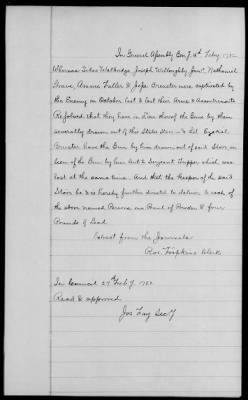 In General Assembly Benn 11th Feby. 1782
Whereas Silas Walbridge, Joseph Willoughby Junr. Nathaniel
Graves, Asaume Fuller & Jesse Brewster were captivated by
the Enemy in October last & lost their Arms & Accoutrements
Resolved that they have in Lieu thereof the Guns by them
severally drawn out of this State Store — & Lt. Ezekiel
Brewster have the Gun by him drawn out of said Store in
lieu of the Gun by him lent to Sergeant Tupper which was
lost at the same time — And that the Keeper of the said
Store be & is hereby further directed to deliver to each of
the above named Persons one Pound of Powder & four
Pounds of Lead
Extract from the Journals
Ros. Hopkins Clerk
In Council 27th Feb'y. 1782
Read & approved
Jos Fay Sec'y